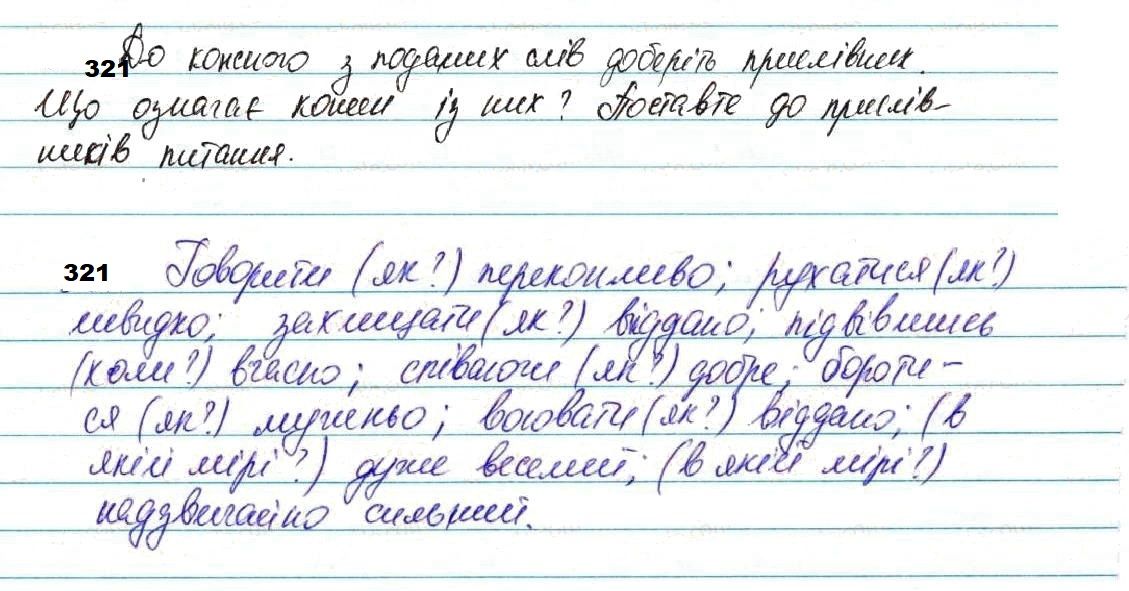 321 До кожного з поданих слів доберіть прислівник.
Що означає кожен із них? Поставте до прислів-
ників питання.
321 Говорити (як?) переконливо; рухатися (як?)
швидко; захищати (як?) віддано; підвівшись
(коли?) вчасно; співаючи (як?) добре; бороти-
ся (як?) мужньо; воювати (як?) віддано; (в
якій мірі?) дуже веселий; (в якій мірі?)
надзвичайно сильний.